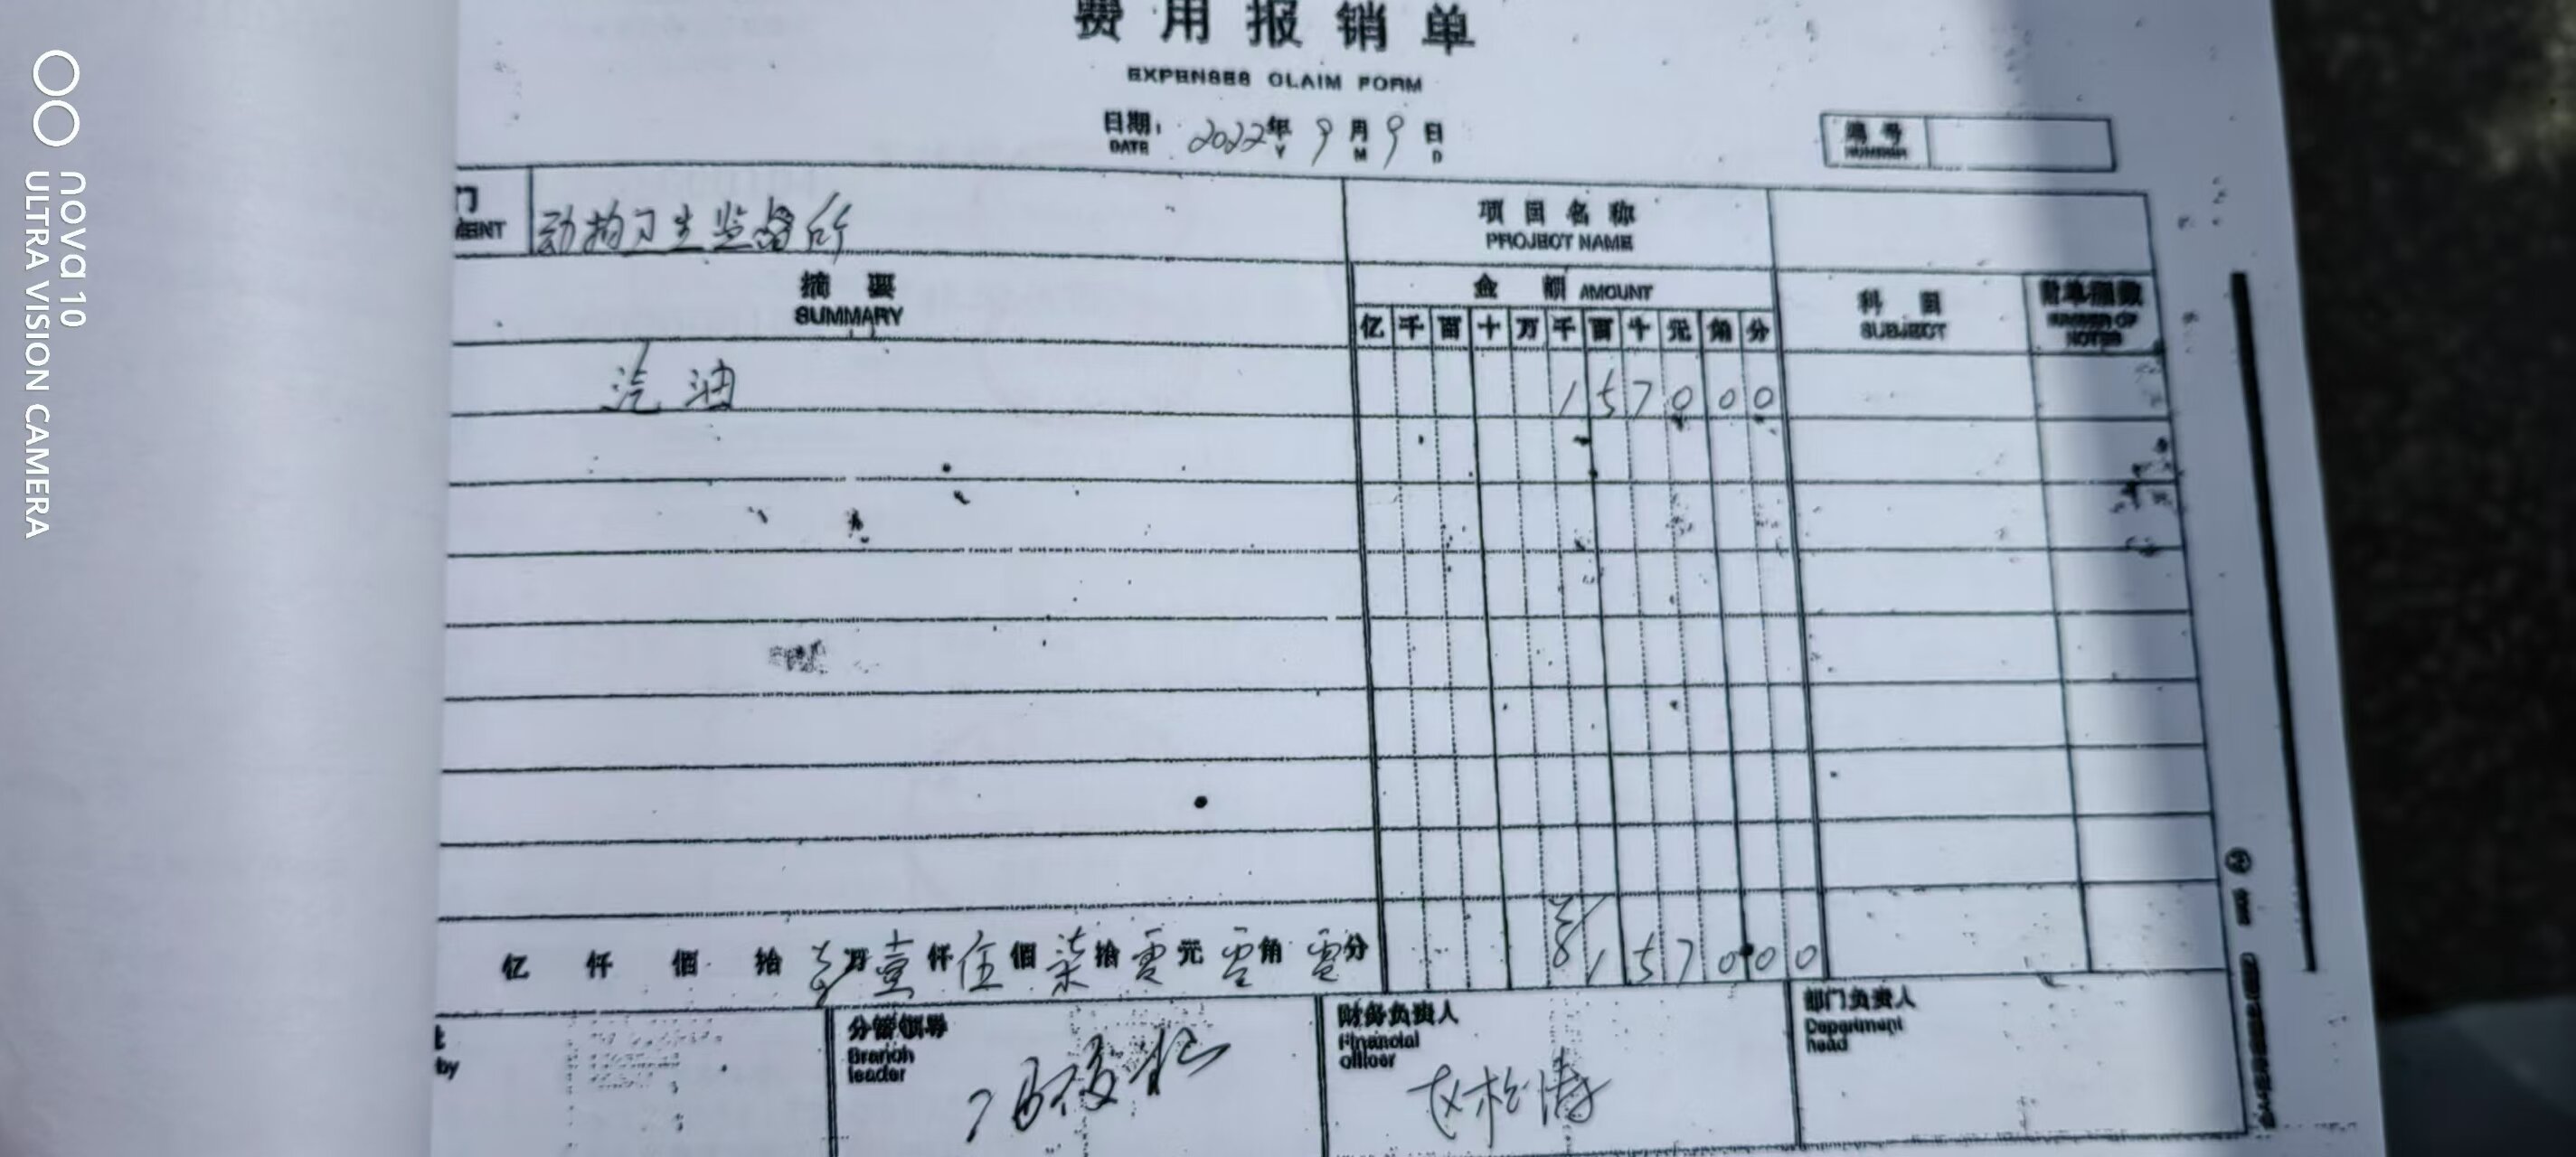 费用报销单
EXPENSES CLAIM FORM
日期： 2022年 9月 9日
DATE Y M D
编号
NUMBER
门 动物卫生监督所 项目名称
MENT PROJECT NAME
摘要 金额 AMOUNT 科目 附单据数
SUMMARY 亿 千 百 十 万 千 百 十 元 角 分 SUBJECT NUMBER OF NOTES
汽油 1 5 7 0 0 0
亿 仟 佰 拾 万 壹 仟 伍 佰 柒 拾 零 元 零 角 零 分 1 5 7 0 0 0
by
分管领导
Branch leader
财务负责人
Financial officer
部门负责人
Department head
nova 10
ULTRA VISION CAMERA